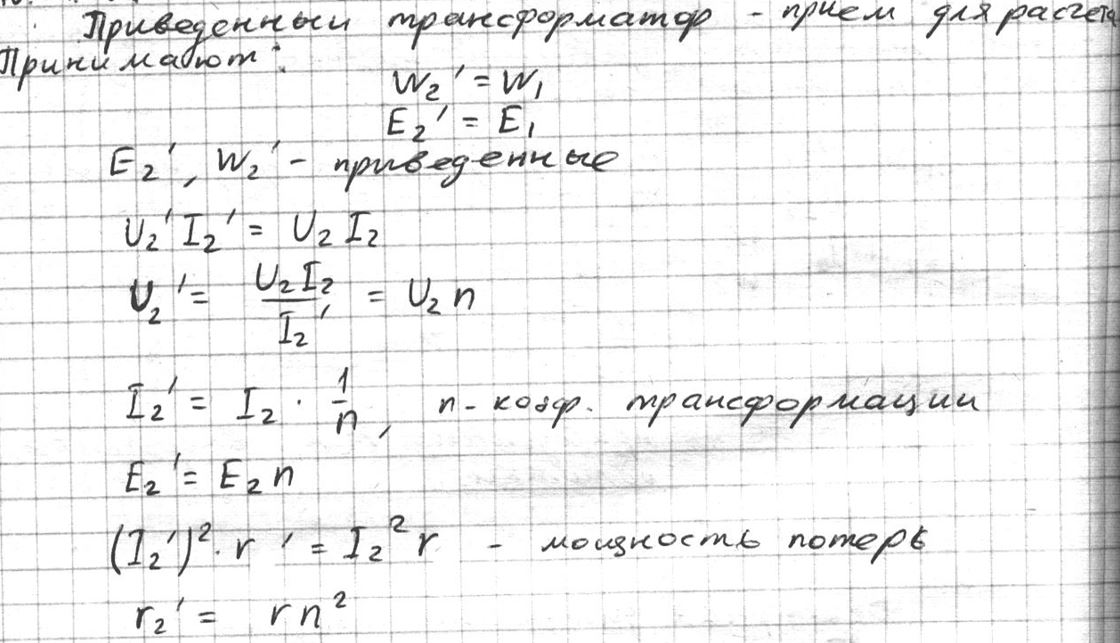 Приведенный трансформатор - прием для расчета
Принимают:
W₂' = W₁
E₂' = E₁
E₂', W₂' - приведенные
U₂' I₂' = U₂ I₂
U₂' = U₂ I₂ / I₂' = U₂ n
I₂' = I₂ · 1/n, n - коэф. трансформации
E₂' = E₂ n
(I₂')² · r' = I₂² r - мощность потерь
r₂' = r n²